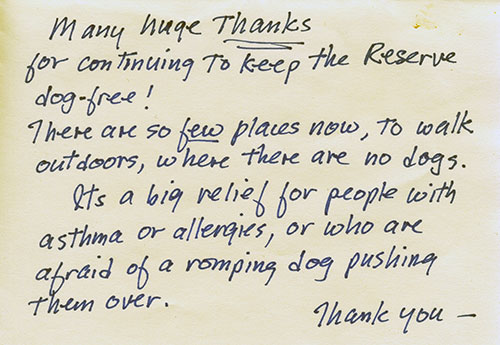 Many huge Thanks
for continuing to keep the Reserve
dog-free!
There are so few places now, to walk
outdoors, where there are no dogs.
Its a big relief for people with
asthma or allergies, or who are
afraid of a romping dog pushing
them over.
Thank you —